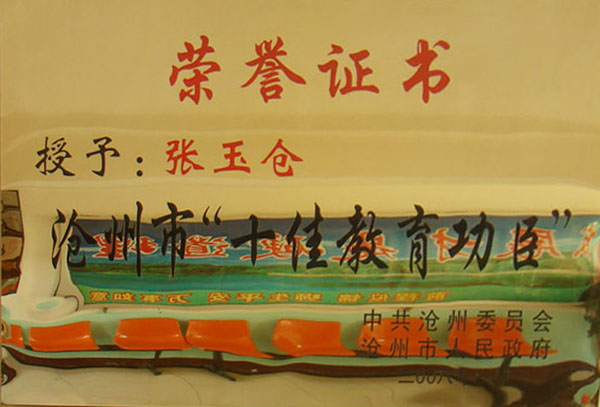 荣誉证书
授予：张玉仓
沧州市“十佳教育功臣”
中共沧州委员会
沧州市人民政府
二00六